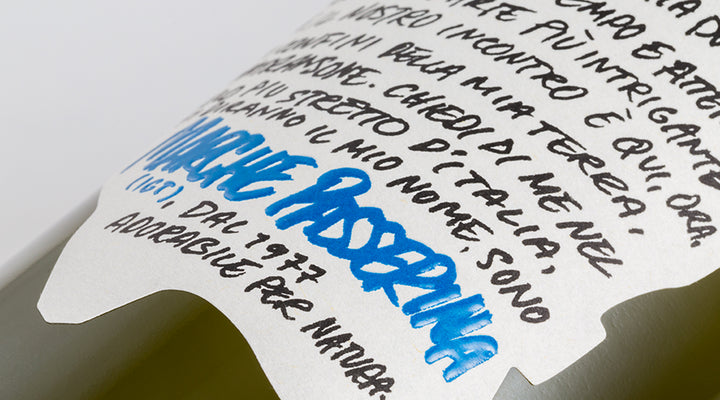 TEMPO E
PIÙ INTRIGANTE
NOSTRO INCONTRO È QUI, ORA.
CONFINI DELLA MIA TERRA,
CHIEDI DI ME NEL
PIÙ STRETTO D'ITALIA,
IL MIO NOME, SONO
MARCHE PASSERINA
(IGP), DAL 1977
ADORABILE PER NATURA.